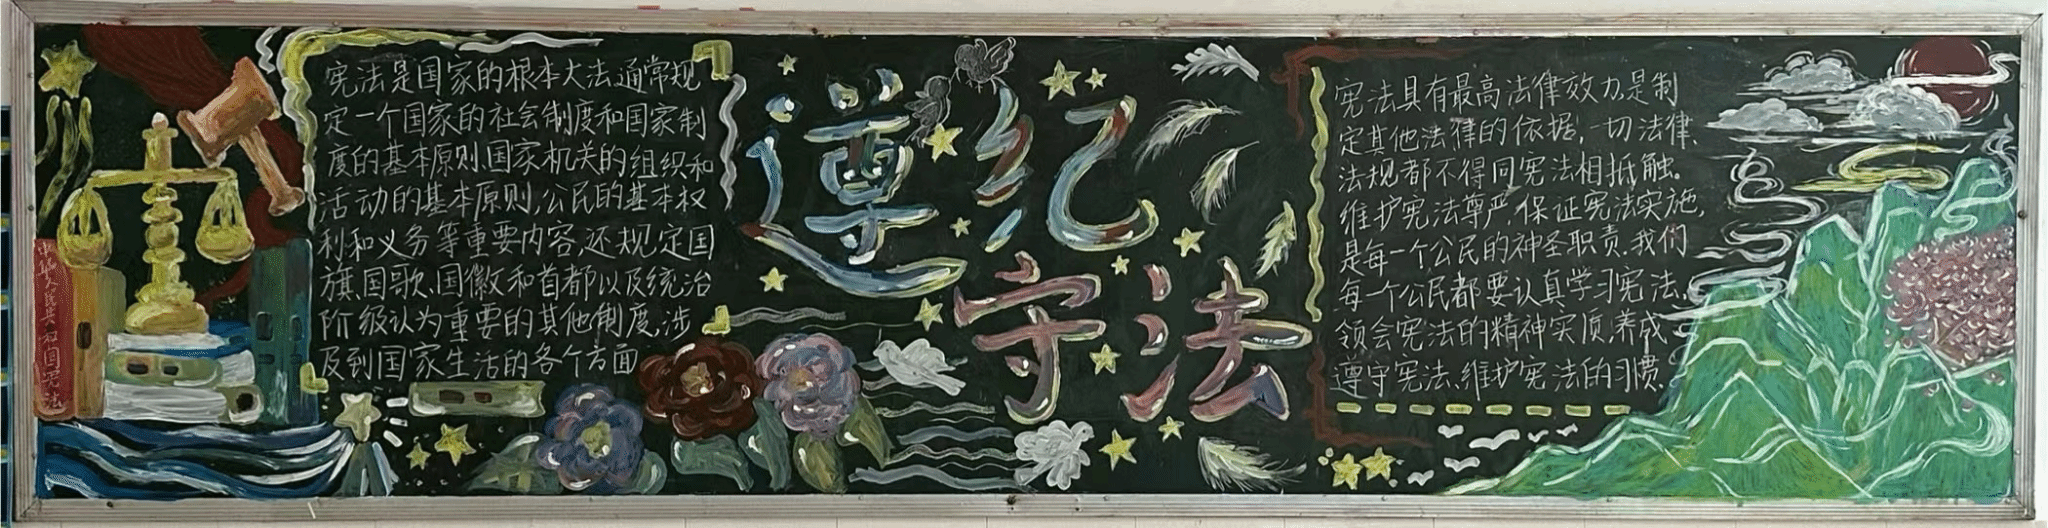 中华人民共和国宪法
宪法是国家的根本大法,通常规
定一个国家的社会制度和国家制
度的基本原则,国家机关的组织和
活动的基本原则,公民的基本权
利和义务等重要内容,还规定国
旗、国歌、国徽和首都以及统治
阶级认为重要的其他制度,涉
及到国家生活的各个方面
遵纪
守法
宪法具有最高法律效力,是制
定其他法律的依据,一切法律、
法规都不得同宪法相抵触。
维护宪法尊严,保证宪法实施,
是每一个公民的神圣职责.我们
每一个公民都要认真学习宪法,
领会宪法的精神实质,养成
遵守宪法、维护宪法的习惯.